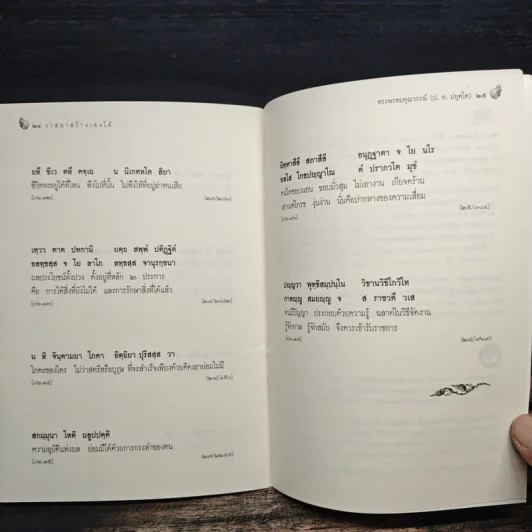 ๒๔ วาสนาสร้างเองได้
ยหึ ชีเว ตหึ คจฺเฉ น นิเกตหโต สิยา
ชีวิตจะอยู่ได้ที่ไหน พึงไปที่นั้น ไม่พึงให้ที่อยู่ฆ่าตนเสีย
เทฺวว ตาต ปทกานิ ยตฺถ สพฺพํ ปติฏฺฐิตํ
อลทฺธสฺส จ โย ลาโภ ลทฺธสฺส จานุรกฺขนา
ผลประโยชน์ทั้งปวง ตั้งอยู่ที่หลัก ๒ ประการ
คือ การได้สิ่งที่ยังไม่ได้ และการรักษาสิ่งที่ได้แล้ว
น หิ จินฺตามยา โภคา อิตฺถิยา ปุริสสฺส วา
โภคะของใคร ไม่ว่าสตรีหรือบุรุษ ที่จะสำเร็จเพียงด้วยคิดเอาย่อมไม่มี
สกมฺมุนา โหติ ผลูปปตฺติ
ความอุบัติแห่งผล ย่อมมีได้ด้วยการกระทำของตน
พระพรหมคุณาภรณ์ (ป. อ. ปยุตฺโต) ๒๕
นิทฺทาสีลี สภาสีลี อนุฏฺฐาตา จ โย นโร
อลโส โกธปญฺญาโณ ตํ ปราภวโต มุขํ
คนใดชอบนอน ชอบมั่วสุม ไม่เอางาน เกียจคร้าน
เอาแต่โกรธ งุ่นง่าน นั่นคือปากทางของความเสื่อม
ปญฺญวา พุทฺธิสมฺปนฺโน วิธานวิธิโกวิโท
กาลญฺญู สมยญฺญู จ ส ราชวสตึ วเส
คนมีปัญญา ประกอบด้วยความรู้ ฉลาดในวิธีจัดงาน
รู้จักกาล รู้จักสมัย จึงควรเข้ารับราชการ